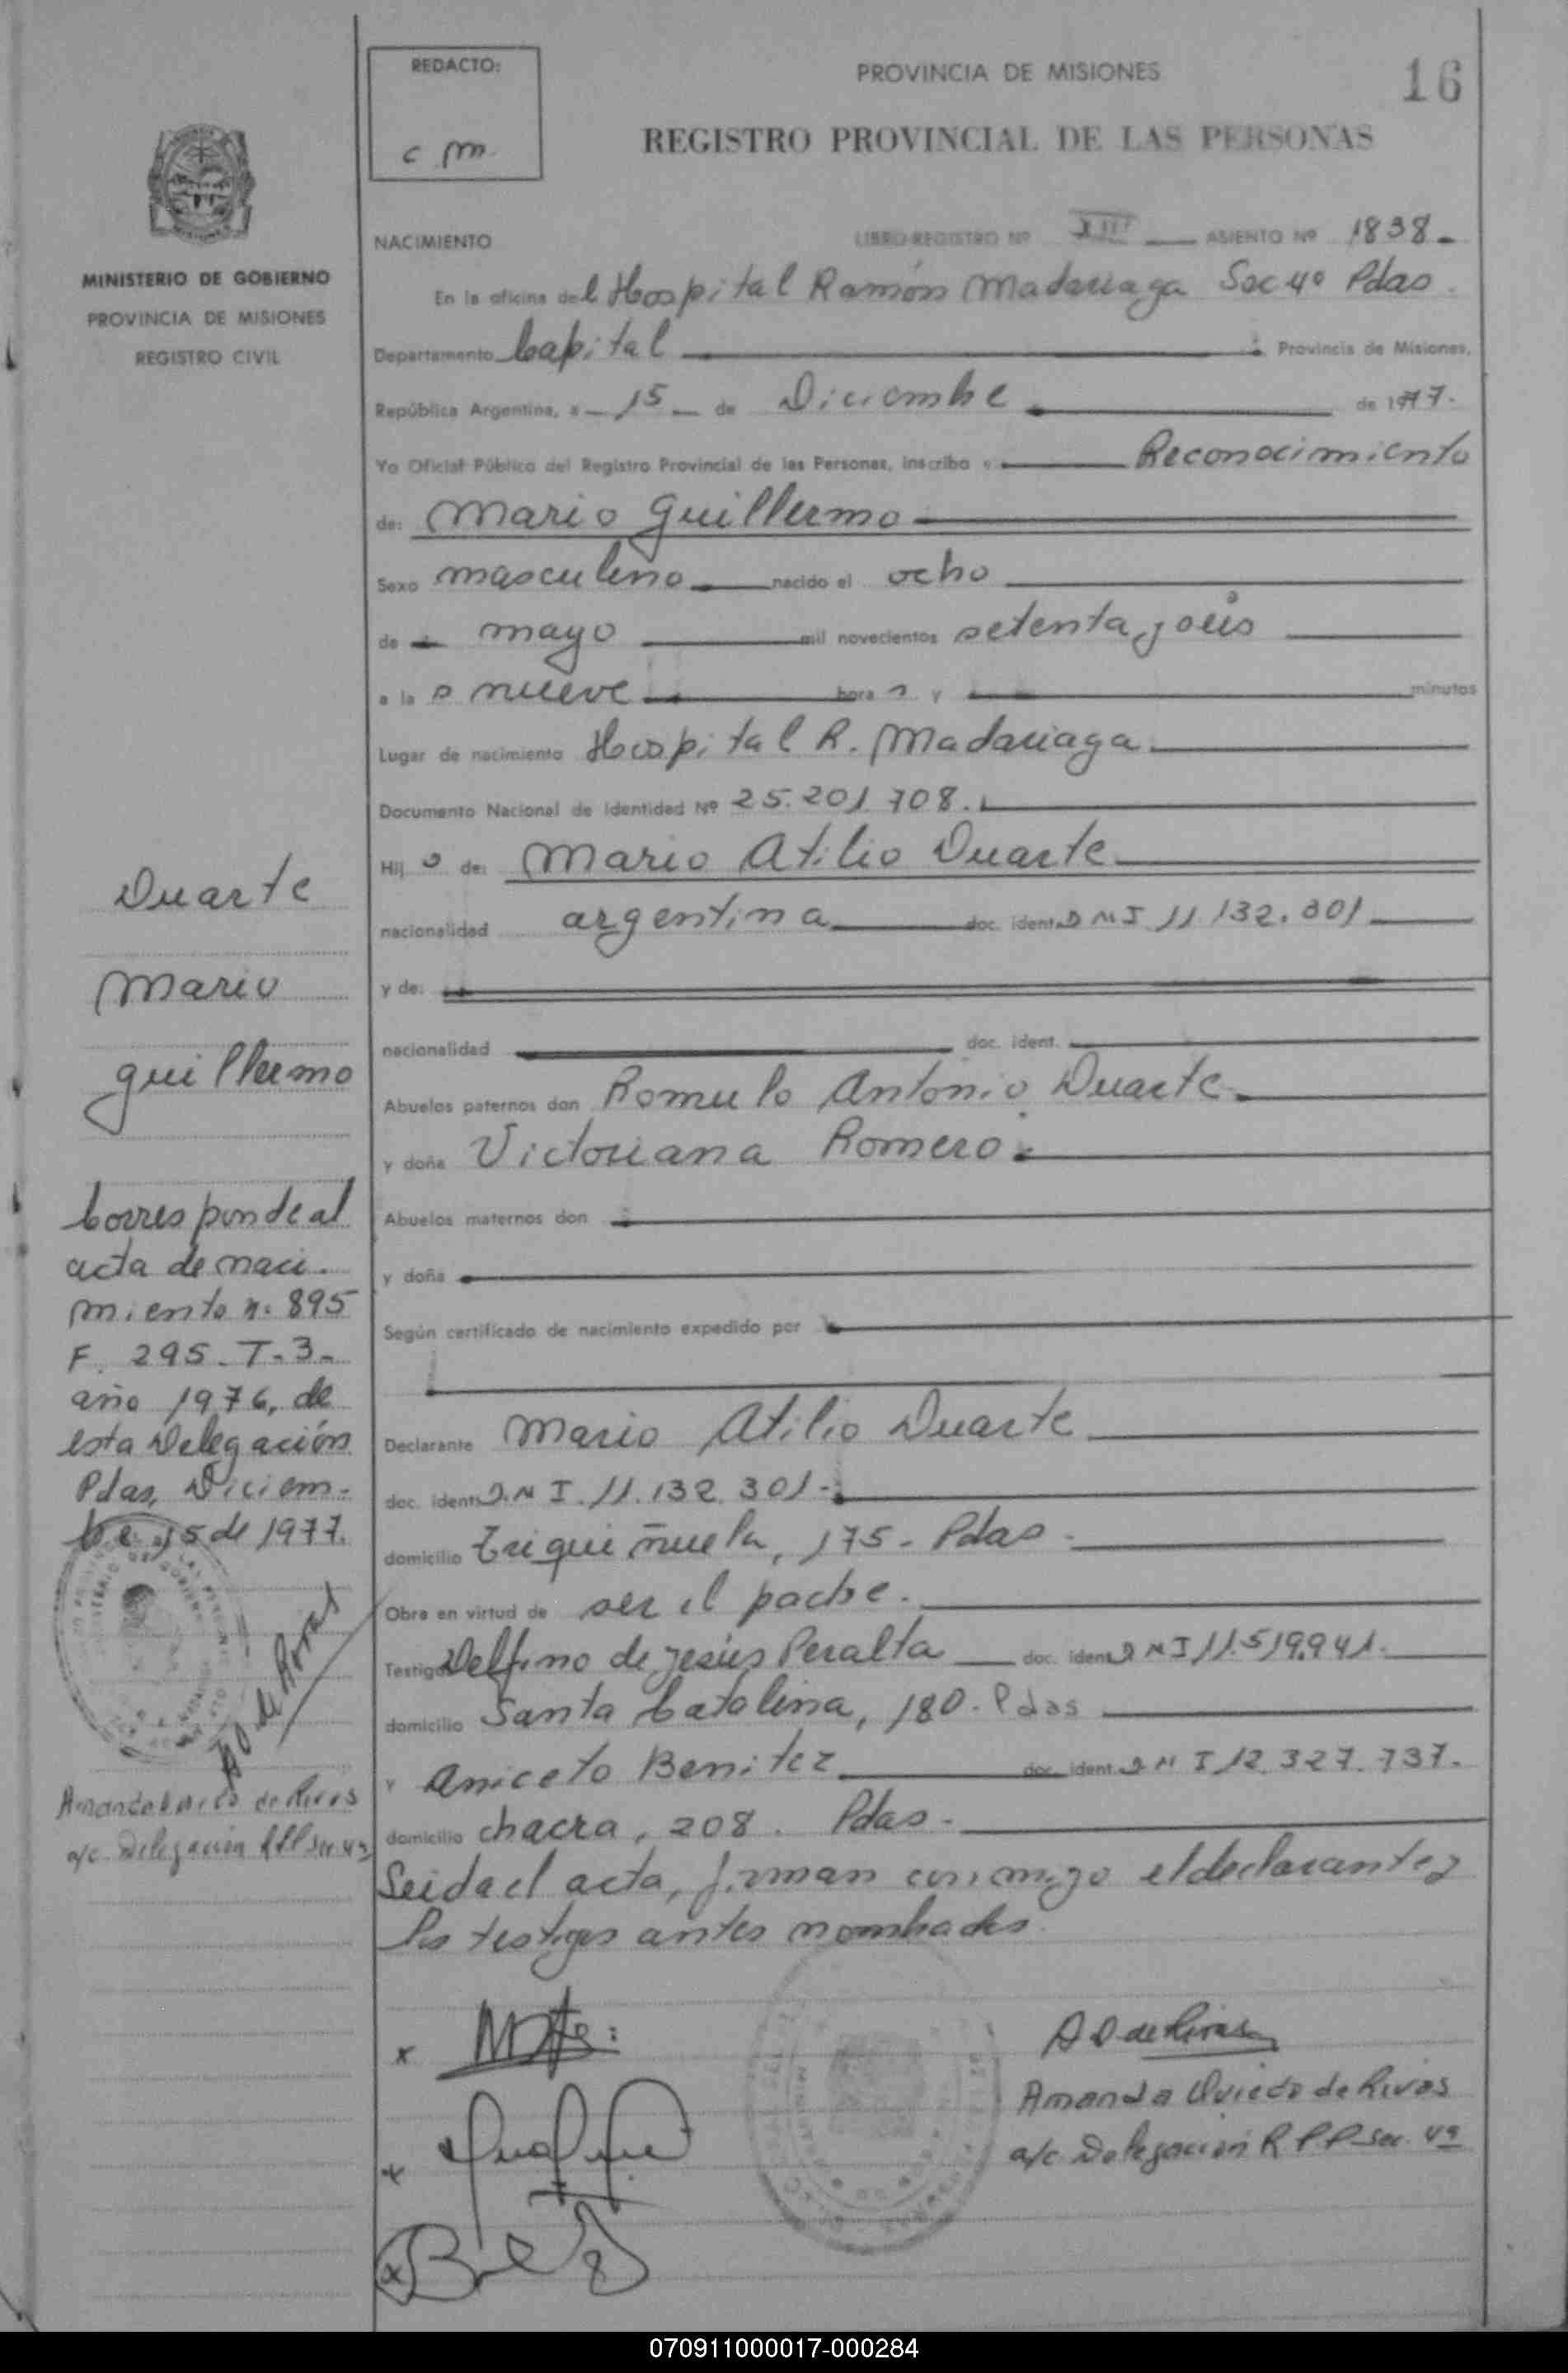 REDACTO:
c m.
PROVINCIA DE MISIONES
16
REGISTRO PROVINCIAL DE LAS PERSONAS
MINISTERIO DE GOBIERNO
PROVINCIA DE MISIONES
REGISTRO CIVIL
NACIMIENTO LIBRO-REGISTRO Nº XIII ASIENTO Nº 1838-
En la oficina del Hospital Ramón Madariaga Sec 4º Pdas.
Departamento Capital Provincia de Misiones,
República Argentina, a 15 de Diciembre de 1977.
Yo Oficial Público del Registro Provincial de las Personas, inscribo Reconocimiento
de: Mario Guillermo
Sexo masculino nacido el ocho
de mayo mil novecientos setenta y seis
a las nueve horas y minutos
Lugar de nacimiento Hospital R. Madariaga
Documento Nacional de Identidad Nº 25.201.708.
Hijo de: Mario Atilio Duarte
nacionalidad argentina doc. ident. D N I 11.132.301
y de:
nacionalidad doc. ident.
Abuelos paternos don Romulo Antonio Duarte
y doña Victoriana Romero.
Abuelos maternos don
y doña
Según certificado de nacimiento expedido por
Declarante Mario Atilio Duarte
doc. ident. D.N I. 11.132.301-
domicilio 175- Pdas.
Obra en virtud de ser el padre.
Testigo Delfino de Jesús Peralta doc. ident. D N I 11.519.941.
domicilio Santa Catalina, 180. Pdas
y Aniceto Benitez doc. ident. D N I 12.327.737.
domicilio chacra, 208. Pdas.
Leida el acta, firman conmigo el declarante y
los testigos antes nombrados.
Duarte
Mario
Guillermo
Corresponde al
acta de naci-
miento nº 895
F. 295. T-3-
año 1976, de
esta Delegación
Pdas, Diciem-
bre 15 de 1977.
A O de Rivas
Amanda Oviedo de Rivas
a/c Delegación R P P sec. 4ª
A O de Rivas
Amanda Oviedo de Rivas
a/c Delegación R P P sec. 4ª
070911000017-000284